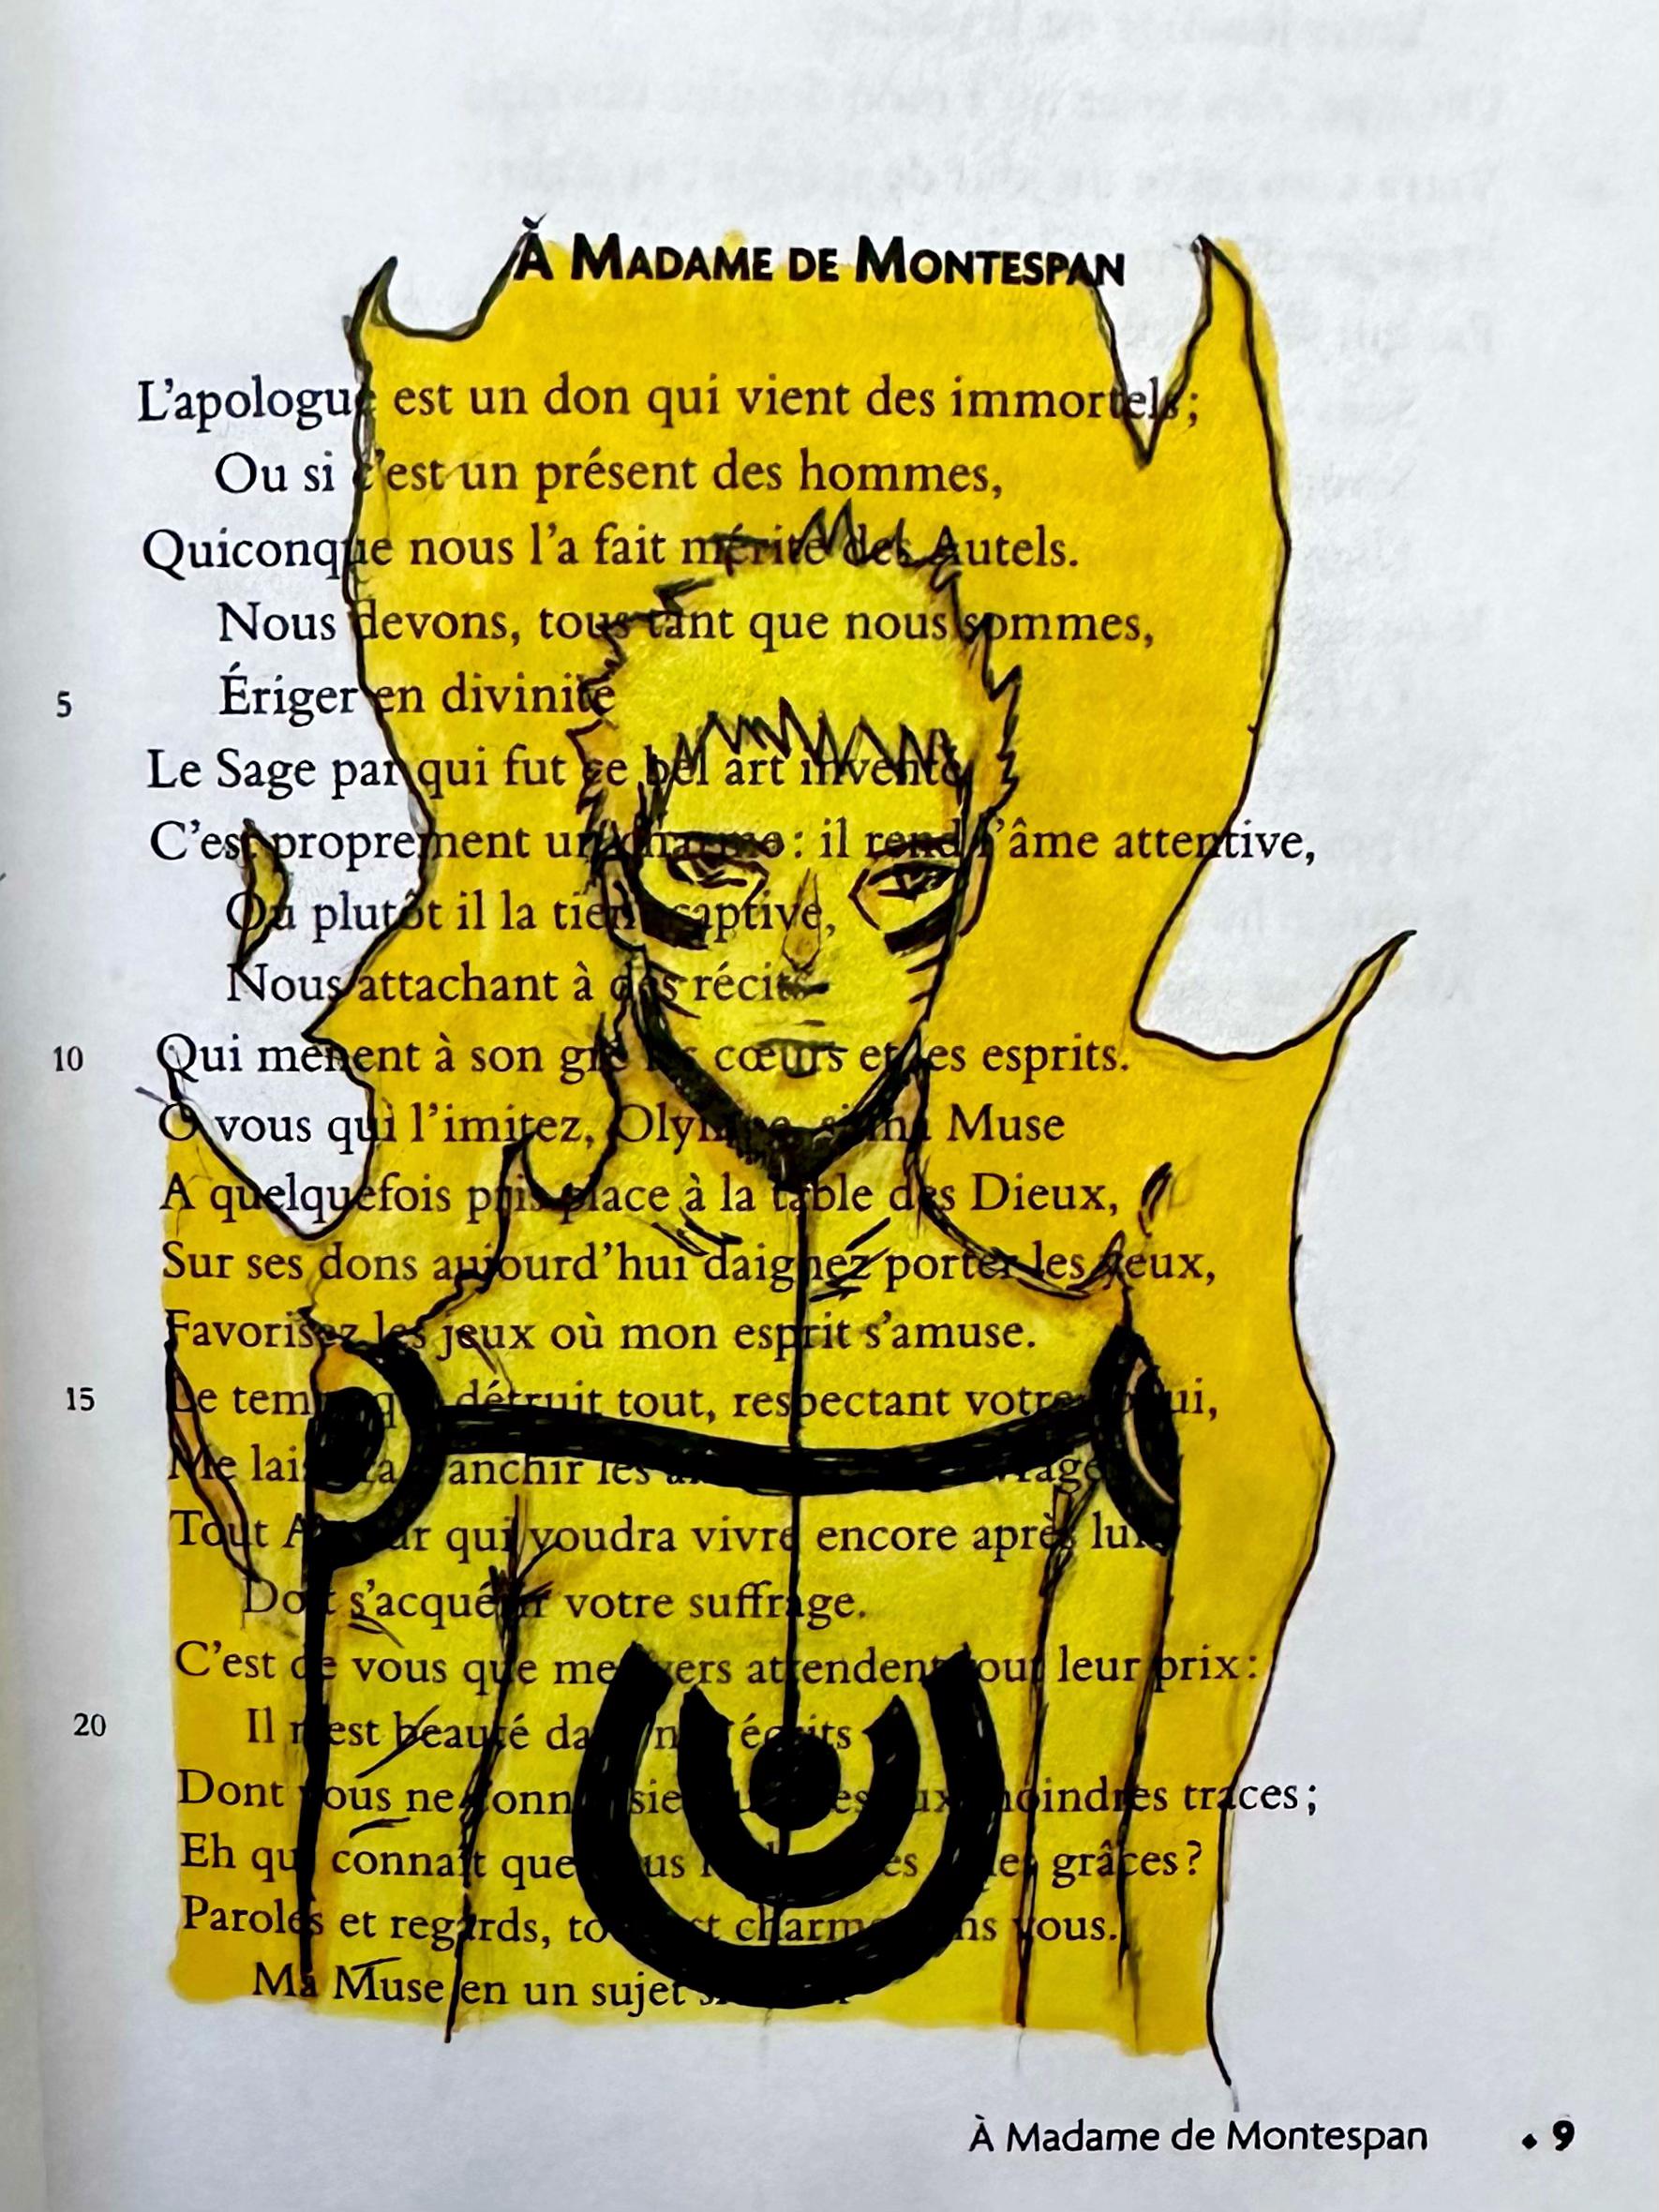 À MADAME DE MONTESPAN
L'apologue est un don qui vient des immortels ;
Ou si c'est un présent des hommes,
Quiconque nous l'a fait mérite des Autels.
Nous devons, tous tant que nous sommes,
5 Ériger en divinité
Le Sage par qui fut ce bel art inventé.
C'est proprement un charme : il rend l'âme attentive,
Ou plutôt il la tient captive,
Nous attachant à des récits
10 Qui mènent à son gré les cœurs et les esprits.
Ô vous qui l'imitez, Olympe, si ma Muse
A quelquefois pris place à la table des Dieux,
Sur ses dons aujourd'hui daignez porter les yeux,
Favorisez les jeux où mon esprit s'amuse.
15 Le temps qui détruit tout, respectant votre appui,
Me laissera franchir les ans
Tout Auteur qui voudra vivre encore après lui
Doit s'acquérir votre suffrage.
C'est de vous que mes vers attendent tout leur prix :
20 Il n'est beauté dans nos écrits
Dont vous ne connaissiez jusques aux moindres traces ;
Eh qui connaît que vous les grâces ?
Paroles et regards, tout est charme dans vous.
Ma Muse en un sujet
À Madame de Montespan • 9